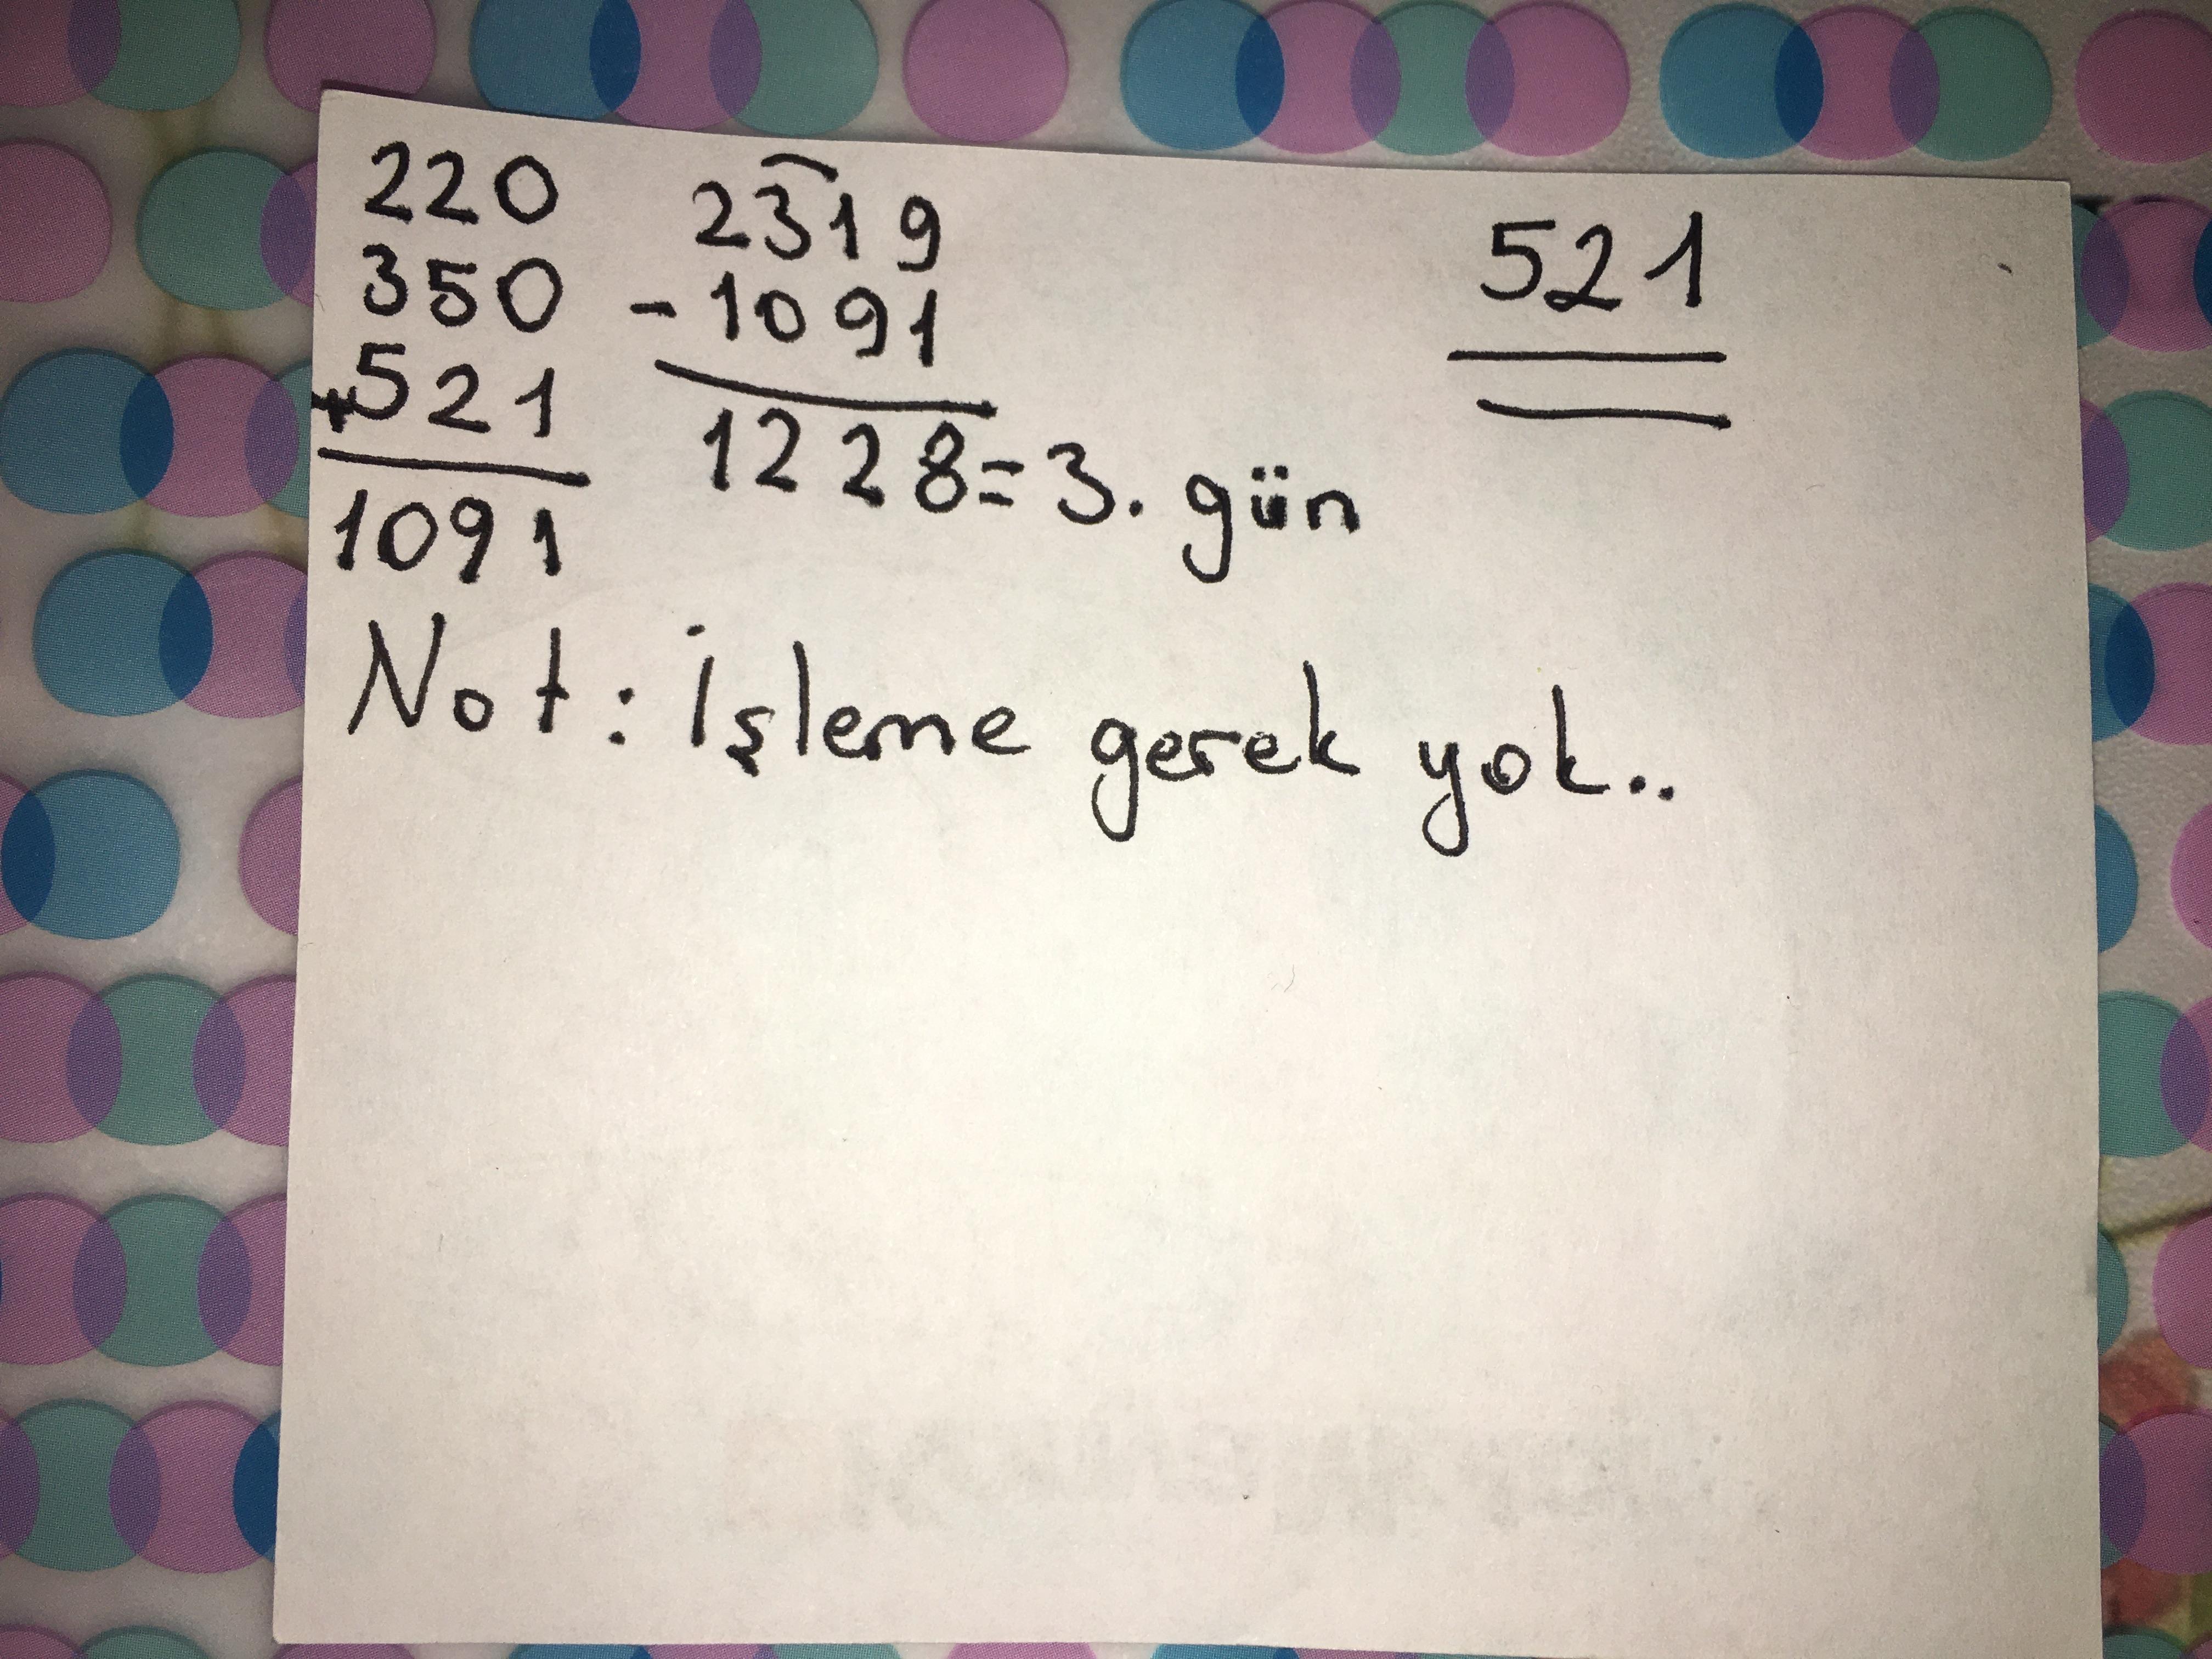 220
350
+521
1091
2319
-1091
1228=3. gün
521
Not: İşleme gerek yok..